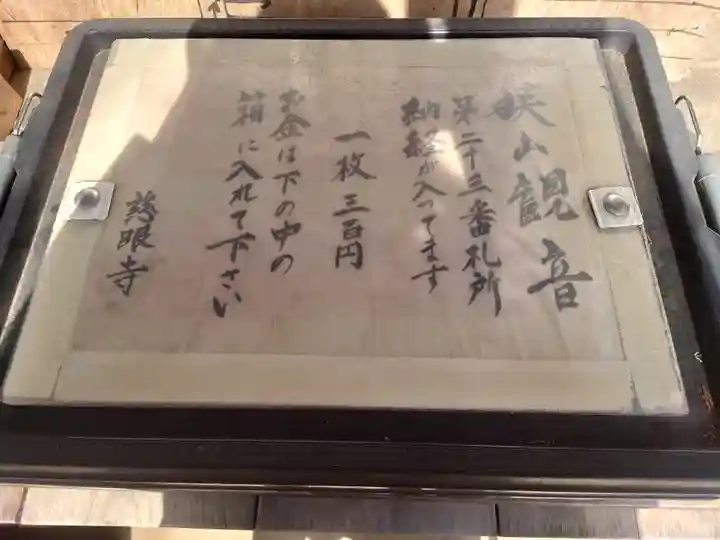 狭山観音
第二十三番札所
納経が入ってます
一枚三百円
お金は下の中の
箱に入れて下さい
慈眼寺
札